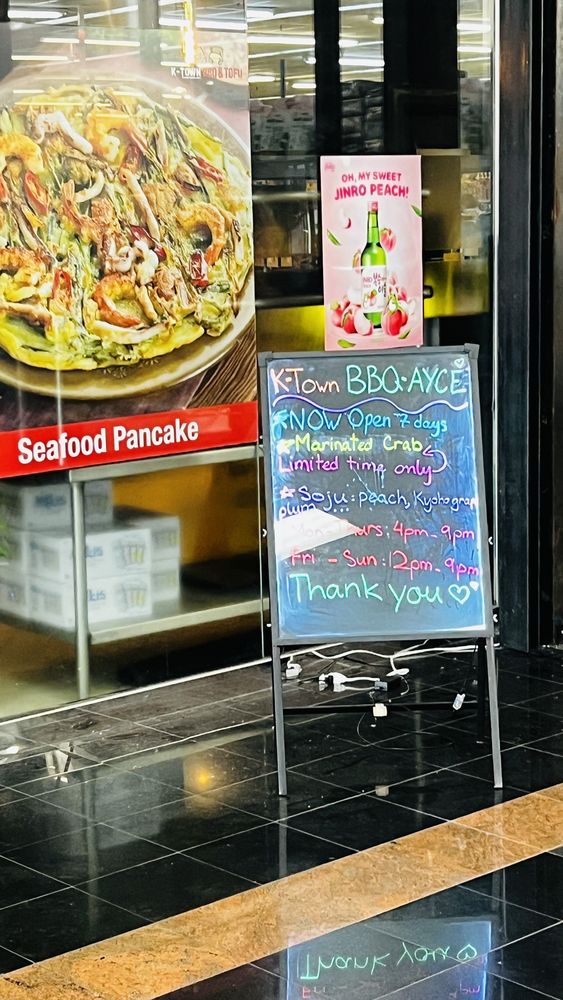 K-TOWN BBQ & TOFU
Seafood Pancake
OH, MY SWEET
JINRO PEACH!
K-Town BBQ-AYCE
NOW Open 7 days
Marinated Crab
Limited time only
Soju: peach, Kyoho grap
plum...
Mon-Thurs: 4pm-9pm
Fri - Sun: 12pm-9pm
Thank you
Thank you